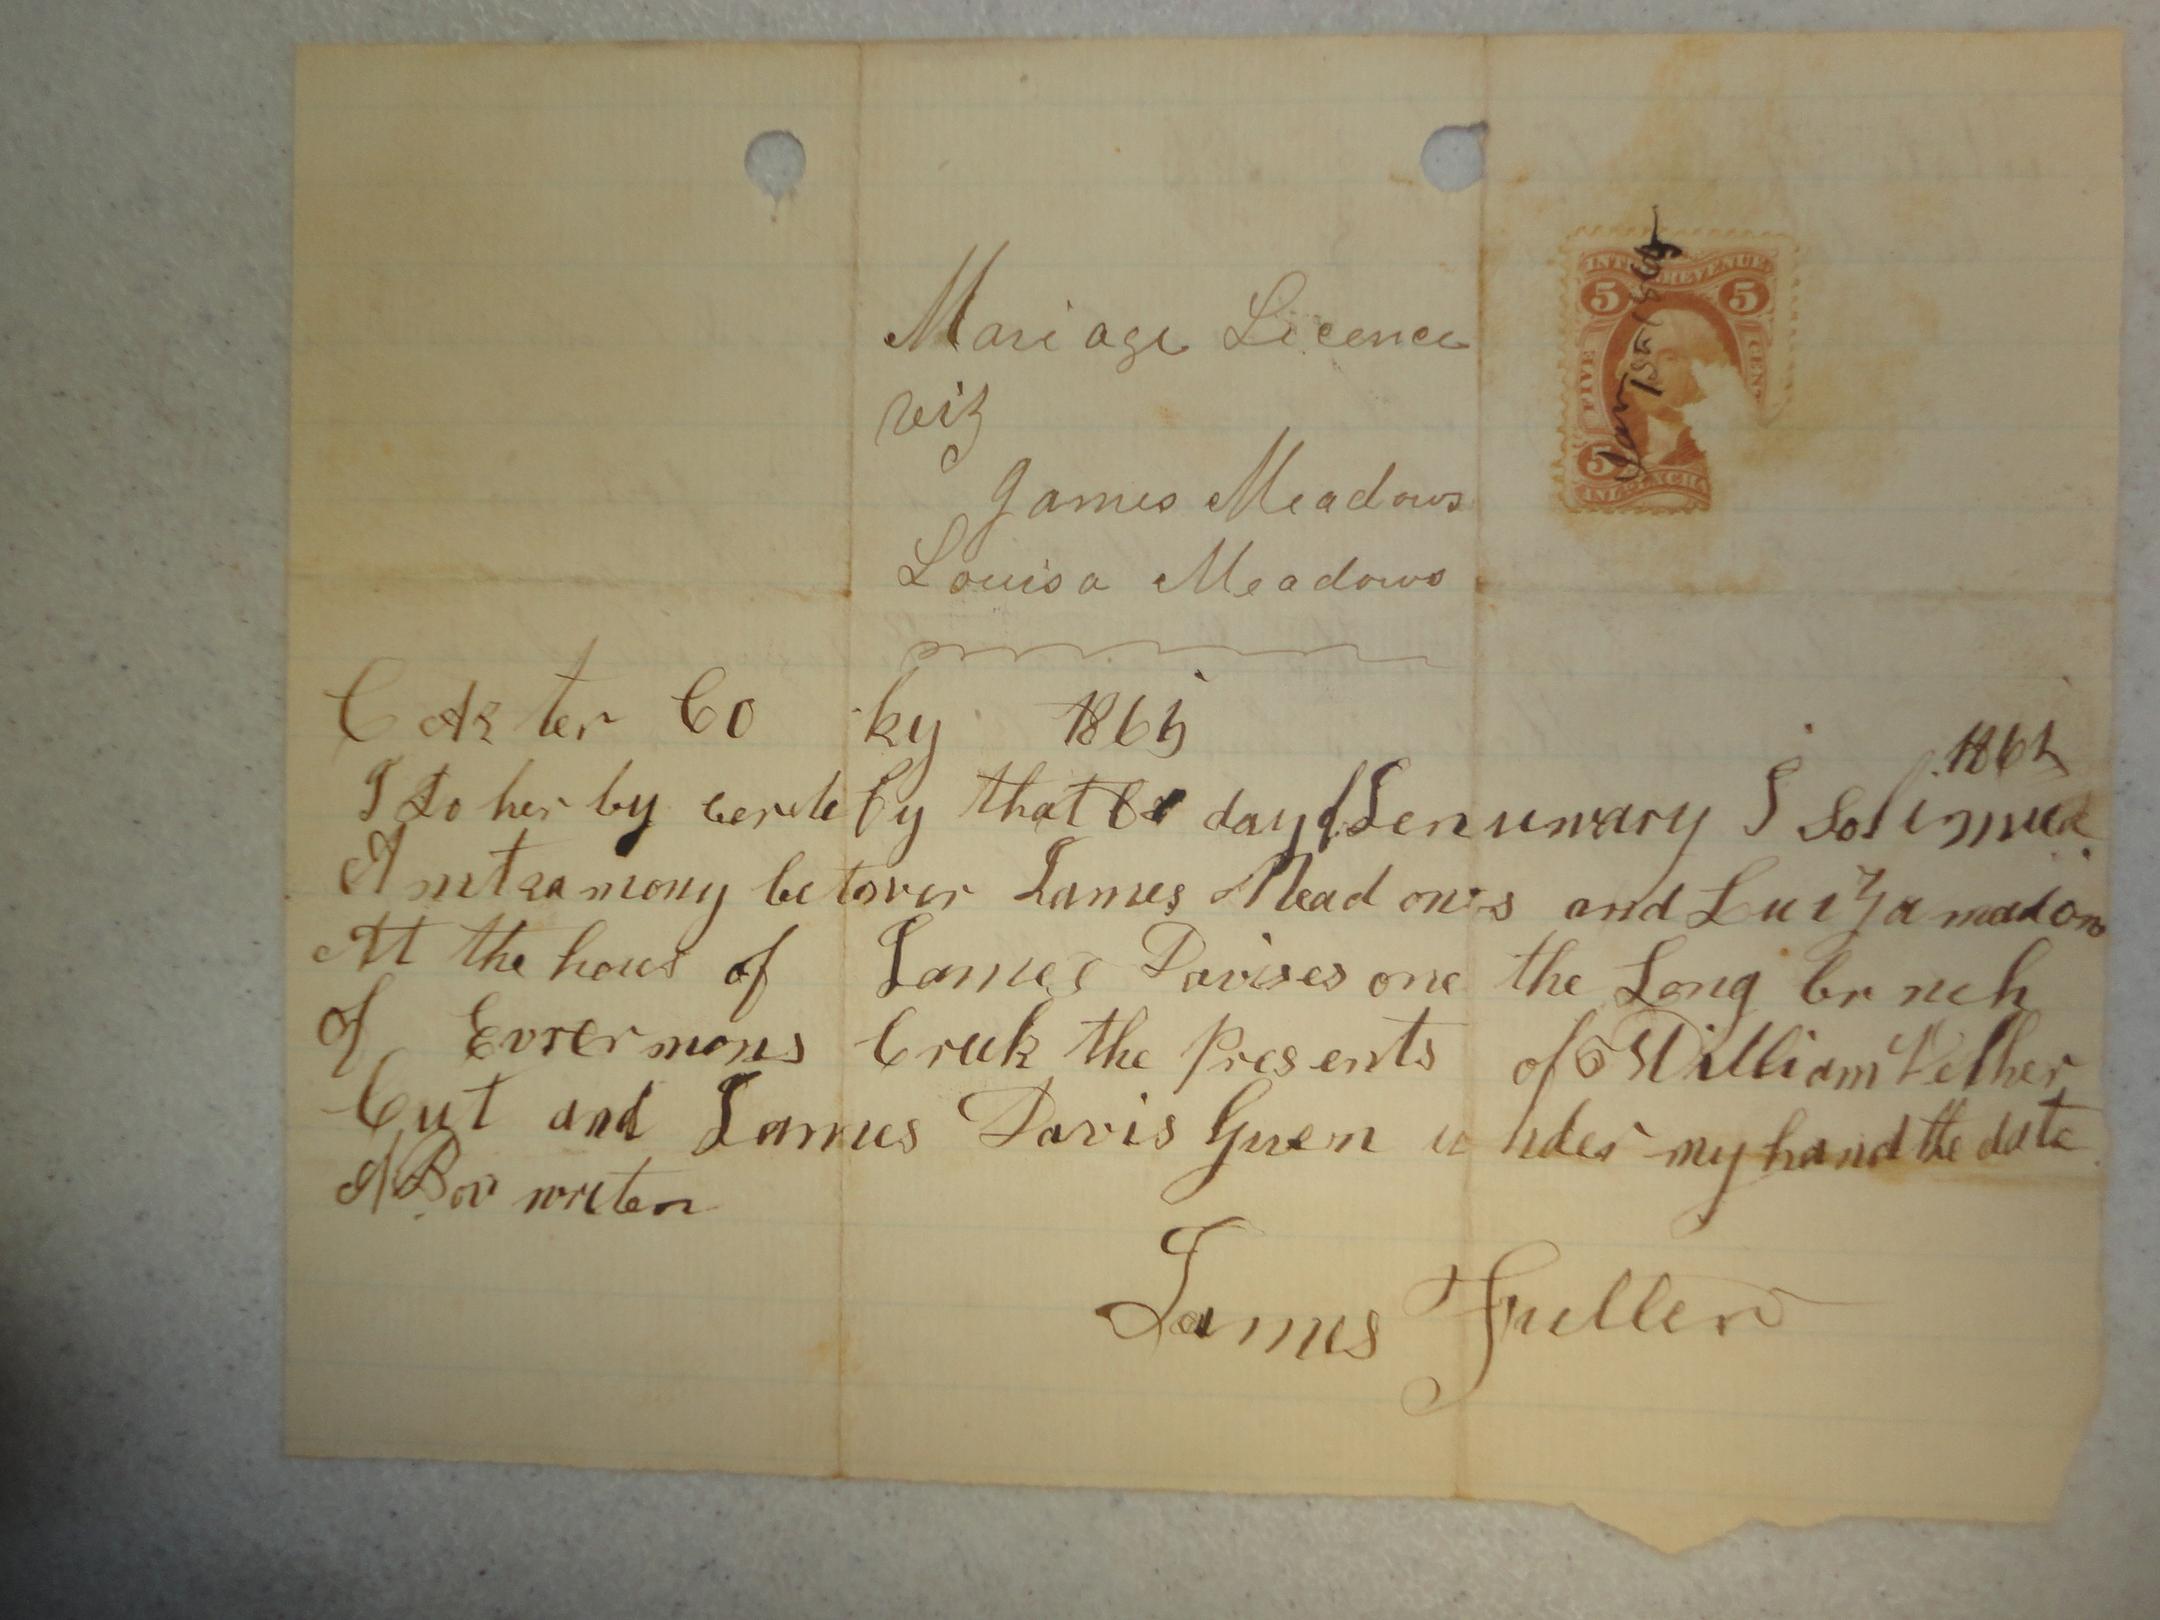 Mariage Licence
viz
James Meadows
Louisa Meadows
INTER. REVENUE
5 5
FIVE CENT
5
INLAND EXCHA
Carter Co ky 1865
1865
I do her by certe fy that day of Jenuwary I Solimnied
A metramony betwer James Meadows and Luiza madows
At the hous of James Davises one the Long br nch
of Evrermons Creek the Presents of William
Cut and James Davis Given u nder my hand the date
A Bov writen
James Fuller